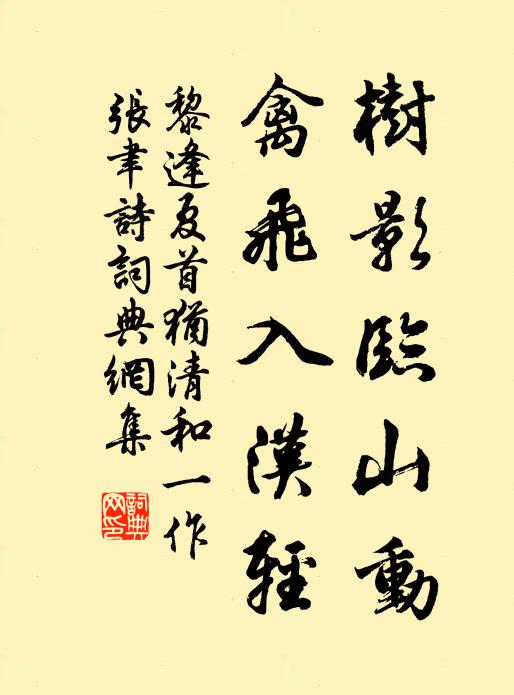 樹影臨山動
禽飛入漢輕
黎逢夏首猶清和一作
張聿詩詞典網集
詞典網印